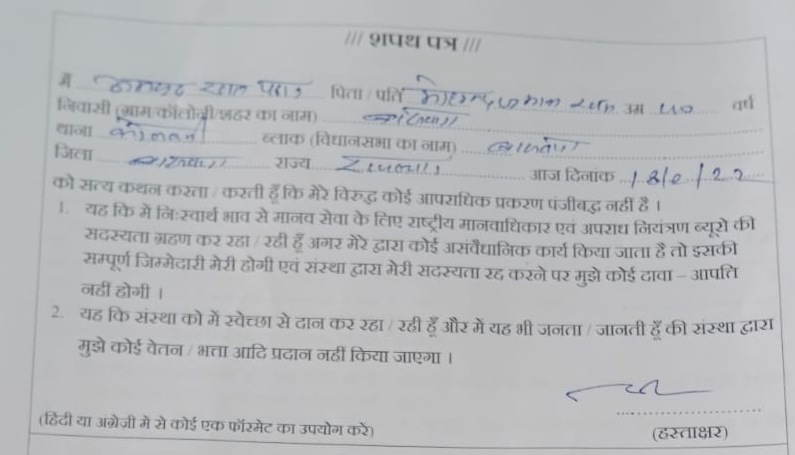 /// शपथ पत्र ///
मैं पिता / पति उम्र 40 वर्ष
निवासी (ग्राम/कॉलोनी/शहर का नाम)
थाना कोतवाली ब्लाक (विधानसभा का नाम)
जिला राज्य आज दिनांक
को सत्य कथन करता / करती हूँ कि मेरे विरुद्ध कोई आपराधिक प्रकरण पंजीबद्ध नहीं है ।
1. यह कि मैं निःस्वार्थ भाव से मानव सेवा के लिए राष्ट्रीय मानवाधिकार एवं अपराध नियंत्रण ब्यूरो की
सदस्यता ग्रहण कर रहा / रही हूँ अगर मेरे द्वारा कोई असंवैधानिक कार्य किया जाता है तो इसकी
सम्पूर्ण जिम्मेदारी मेरी होगी एवं संस्था द्वारा मेरी सदस्यता रद्द करने पर मुझे कोई दावा – आपति
नहीं होगी ।
2. यह कि संस्था को में स्वेच्छा से दान कर रहा / रही हूँ और में यह भी जनता / जानती हूँ की संस्था द्वारा
मुझे कोई वेतन / भत्ता आदि प्रदान नहीं किया जाएगा ।
(हिंदी या अंग्रेजी में से कोई एक फॉरमेट का उपयोग करें)
(हस्ताक्षर)